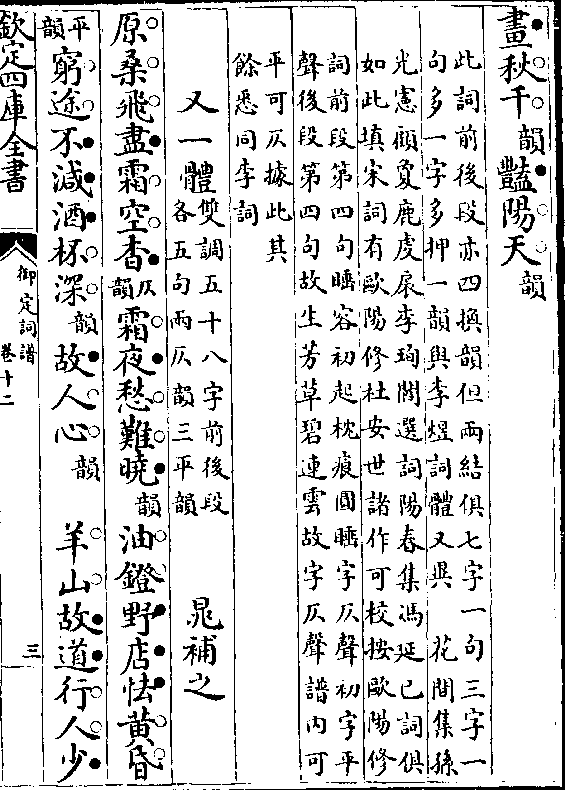 畫秋千韻豔陽天韻
此詞前後段亦四換韻但兩結俱七字一句三字一
句多一字多押一韻與李煜詞體又異 花間集孫
光憲顧夐鹿虔扆李珣閻選詞陽春集馮延巳詞俱
如此填宋詞有歐陽修杜安世諸作可校按歐陽修
詞前段第四句睡容初起枕痕圓睡字仄聲初字平
聲後段第四句故生芳草碧連雲故字仄聲譜内可
平可仄據此其
餘悉同李詞
又一體雙調五十八字前後段
各五句兩仄韻三平韻 晁補之
原桑飛盡霜空杳仄韻霜夜愁難曉韻油鐙野店怯黄昏
平韻窮途不減酒杯深韻故人心韻 羊山故道行人少
欽定四庫全書 御定詞譜 卷十二 三